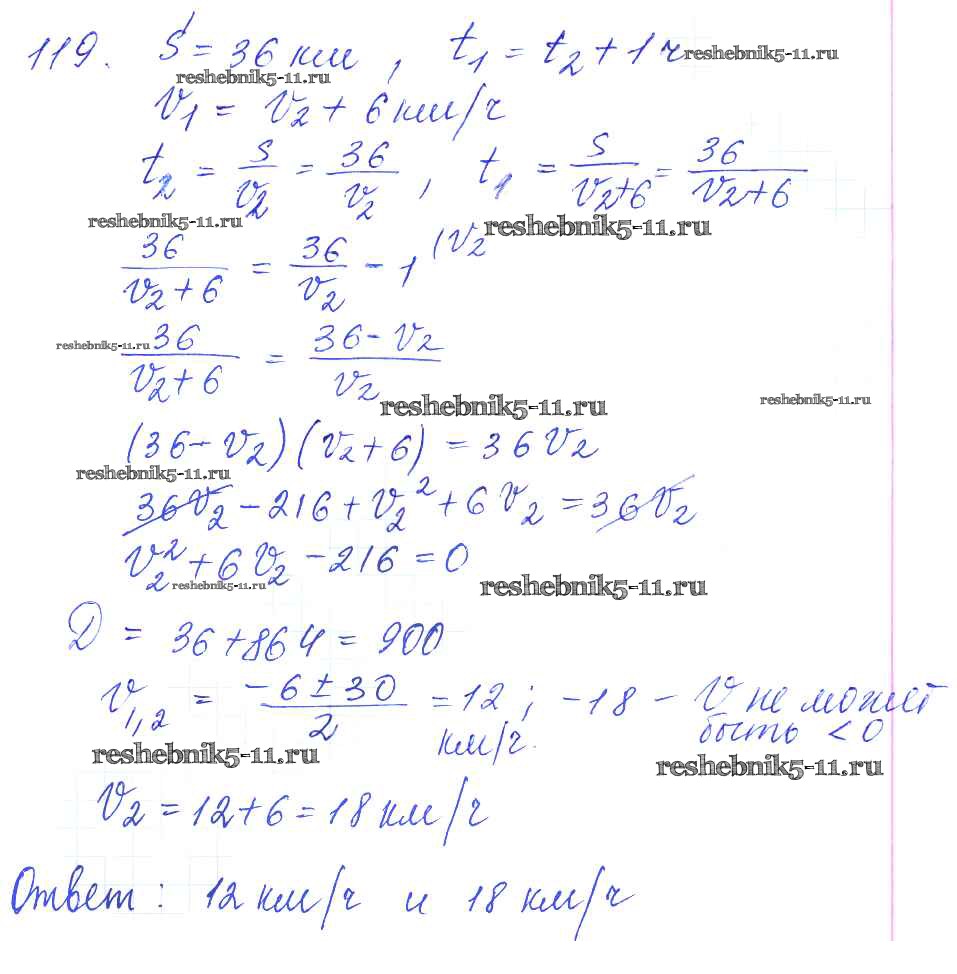 119. S = 36 км, t₁ = t₂ + 1 ч reshebnik5-11.ru
reshebnik5-11.ru
V₁ = V₂ + 6 км/ч
t₂ = S/V₂ = 36/V₂, t₁ = S/(V₂+6) = 36/(V₂+6)
reshebnik5-11.ru reshebnik5-11.ru
36/(V₂+6) = 36/V₂ - 1 (V₂
reshebnik5-11.ru 36/(V₂+6) = (36-V₂)/V₂
reshebnik5-11.ru reshebnik5-11.ru
(36-V₂)(V₂+6) = 36V₂
reshebnik5-11.ru
36V₂ - 216 + V₂² + 6V₂ = 36V₂
V₂² + 6V₂ - 216 = 0
reshebnik5-11.ru reshebnik5-11.ru
D = 36 + 864 = 900
V₁,₂ = (-6 ± 30)/2 = 12; -18 - V не может
км/ч. быть < 0
reshebnik5-11.ru reshebnik5-11.ru
V₂ = 12 + 6 = 18 км/ч
Ответ: 12 км/ч и 18 км/ч